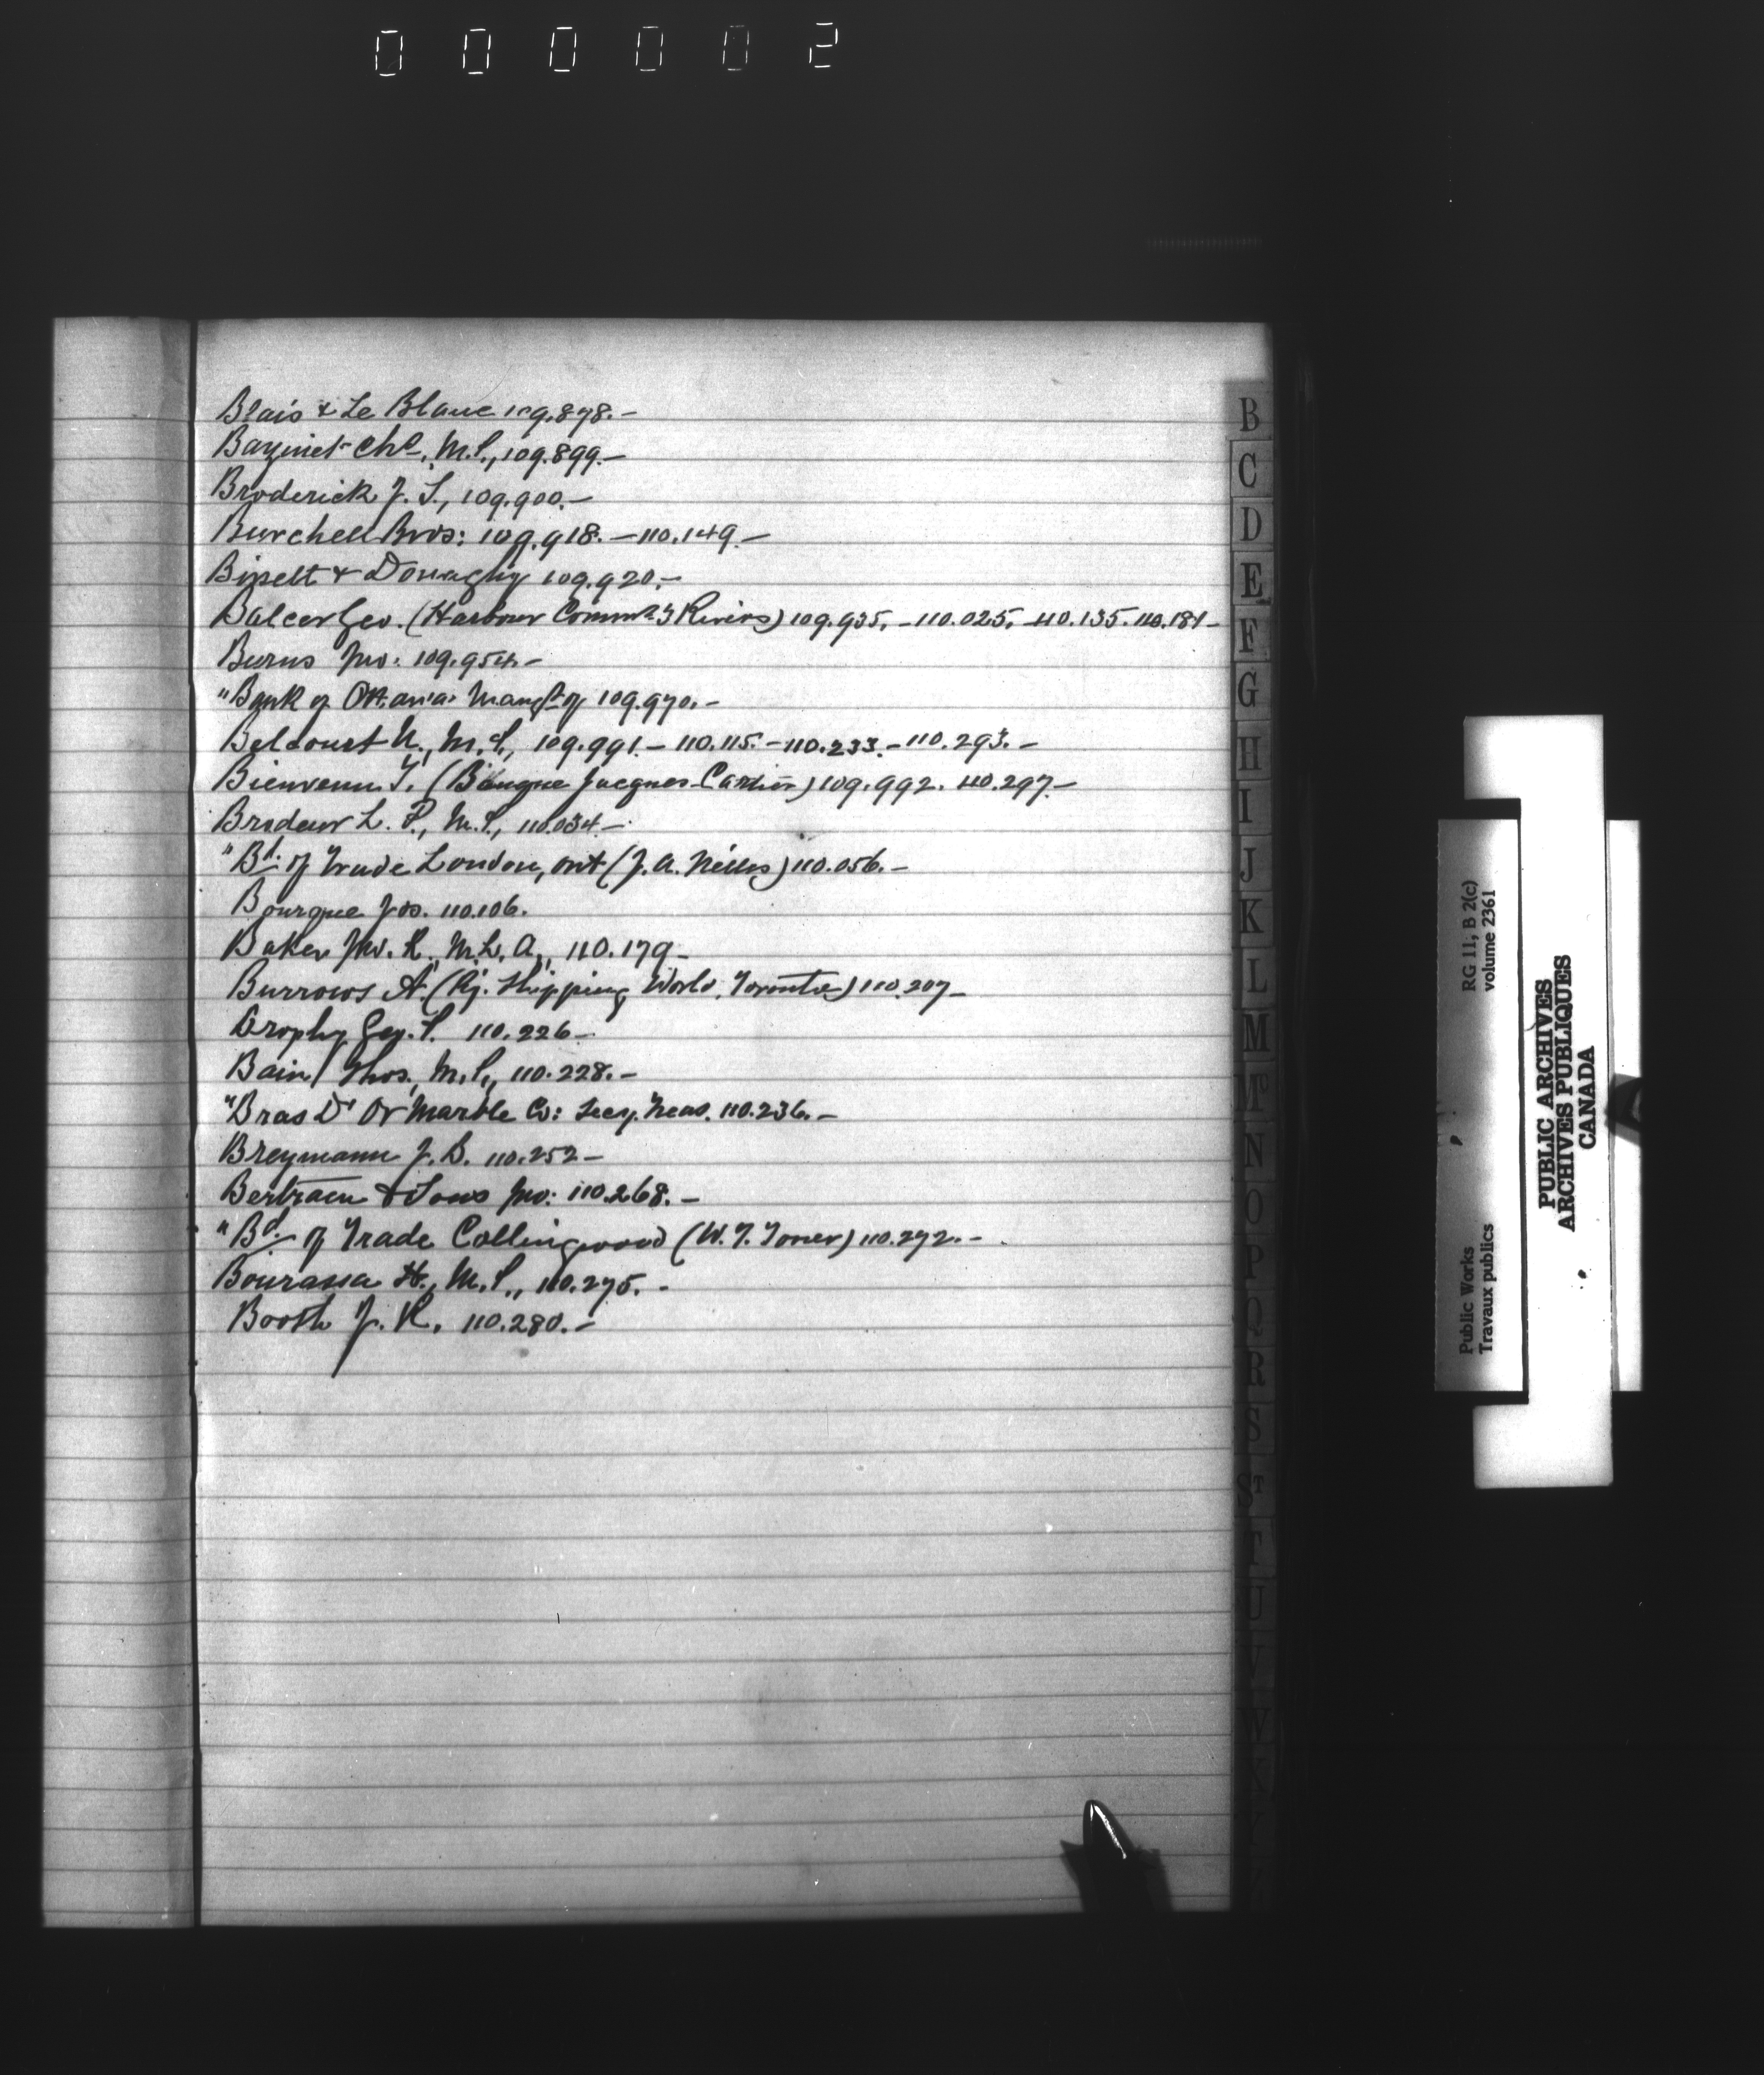 000002
Blais & Le Blanc 109.878.—
Bazinet Chs, M.P., 109.899.—
Broderick J. S., 109.900.—
Burchell Bros: 109.918. — 110.149.—
Bissett & Donaghy 109.920.—
Balcer Geo. (Harbour Commrs 3 Rivers) 109.935. — 110.025. — 110.135. 110.181—
Burns Jno: 109.954.—
"Bank of Ottawa" Mangr of 109.970.—
Belcourt N., M.P., 109.991.— 110.115.— 110.233.— 110.293.—
Bienvenu T. (Banque Jacques-Cartier) 109.992. 110.297.—
Brodeur L. P., M.P., 110.034.—
"Bd. of Trade London, Ont (J. A. Nelles) 110.056.—
Bourque Jos. 110.106.
Baker Jno. R., M.L.A., 110.179—
Burrows A. (Rg. Shipping World, Toronto) 110.207—
Brophy Geo. P. 110.226—
Bain Thos., M.P., 110.228.—
"Bras D'Or Marble Co: Secy. Treas. 110.236.—
Breymann J. B. 110.252—
Bertram & Sons Jno: 110.268.—
"Bd. of Trade Collingwood (W. T. Toner) 110.272.—
Bourassa H., M.P., 110.275.—
Booth J. R. 110.280.—
B
C
D
E
F
G
H
I
J
K
L
M
Mc
N
O
P
Q
R
S
ST
T
U
V
W
X
Y
Public Works
Travaux publics
RG 11, B 2(c)
volume 2361
PUBLIC ARCHIVES
ARCHIVES PUBLIQUES
CANADA